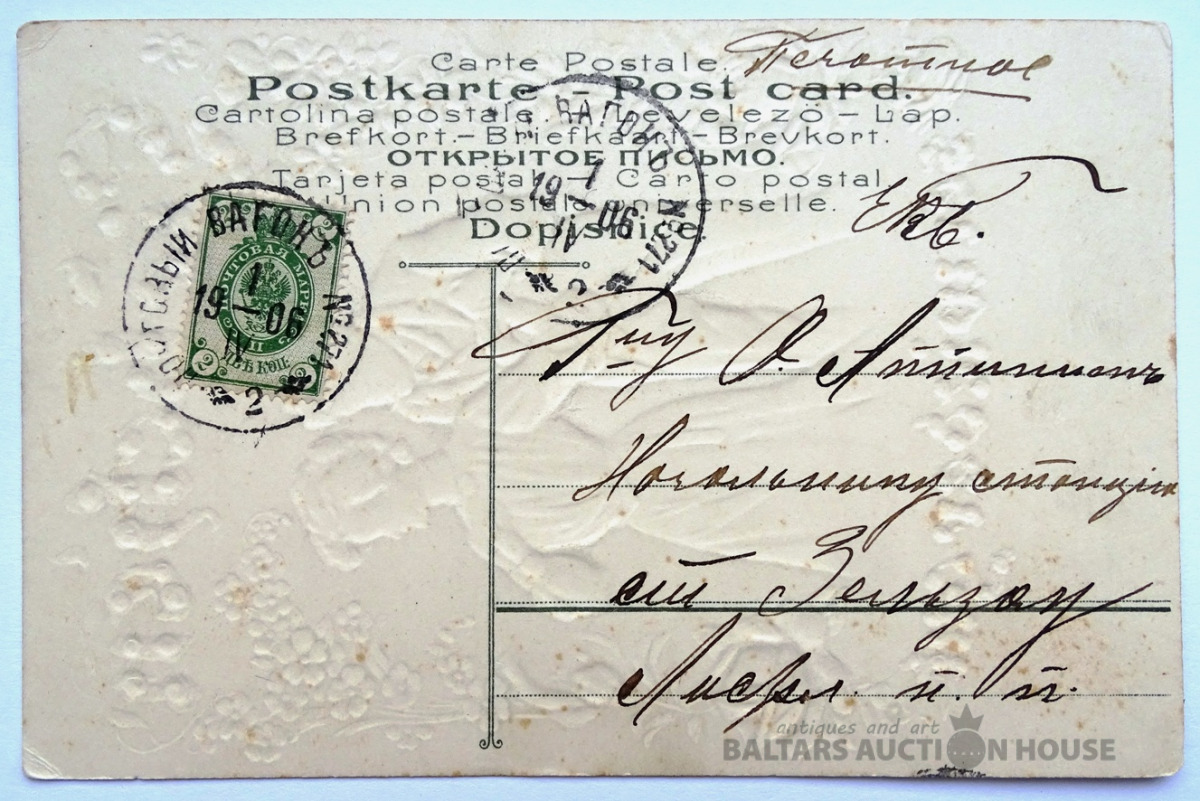 Carte Postale.
Печатное
Postkarte - Post card.
Cartolina postale. - Levelezö - Lap.
Brefkort.- Briefkaart.- Brevkort.
ОТКРЫТОЕ ПИСЬМО.
Tarjeta postal. - Carto postal
Union postale universelle.
Dopisnice.
ЕВБ.
ВАГОНЪ № 271
1
19-06
IV
2
ПОЧТОВЫЙ ВАГОНЪ № 271
1
19-06
IV
2
ПОЧТОВАЯ МАРКА
ДВѢ КОП.
2
Г-ну О.
Начальнику станціи
ст Зельзау
п. п.
antiques and art
BALTARS AUCTION HOUSE